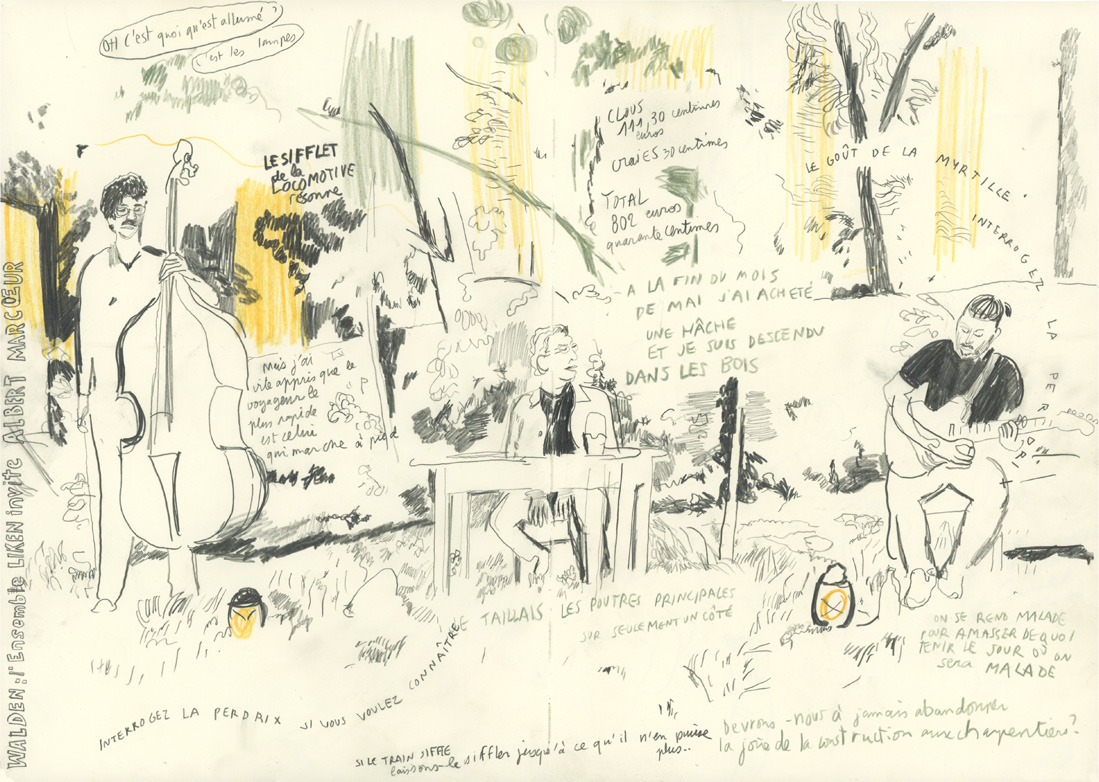 OH c'est quoi qu'est allumé ?
c'est les lampes
LE SIFFLET
de la
LOCOMOTIVE
résonne
CLOUS
111,30 centimes
euros
CRAIES 30 centimes
TOTAL
802 euros
quarante centimes
LE GOÛT DE LA MYRTILLE
INTERROGEZ
LA PERDRIX
A LA FIN DU MOIS
DE MAI J'AI ACHETÉ
UNE HÂCHE
ET JE SUIS DESCENDU
DANS LES BOIS
Mais j'ai
vite appris que le
voyageur le
plus rapide
est celui
qui marche à pied
WALDEN : l'Ensemble LIKEN invite ALBERT MARCŒUR
JE TAILLAIS LES POUTRES PRINCIPALES
SUR SEULEMENT UN CÔTÉ
ON SE REND MALADE
POUR AMASSER DE QUOI
TENIR LE JOUR OÙ ON
sera MALADE
INTERROGEZ LA PERDRIX SI VOUS VOULEZ CONNAÎTRE
SI LE TRAIN SIFFLE
laissons-le siffler jusqu'à ce qu'il n'en puisse
plus..
Devrons-nous à jamais abandonner
la joie de la construction aux charpentiers ?